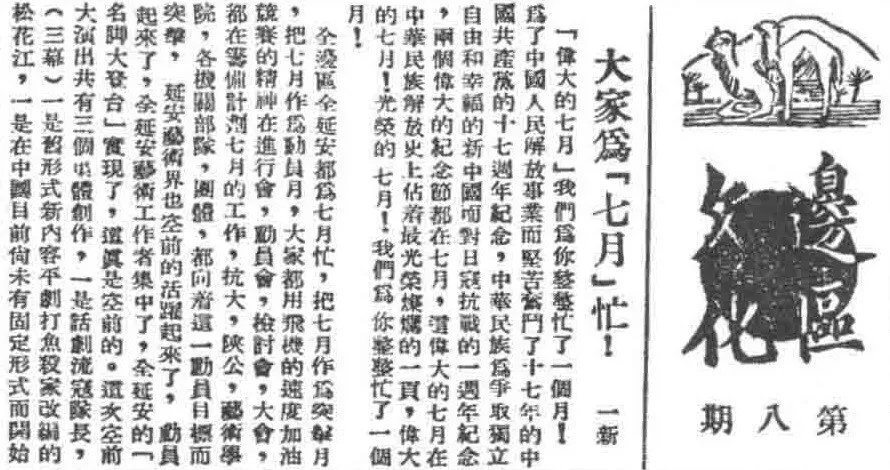 邊區
文化
第八期
大家爲「七月」忙！
一新
「偉大的七月」我們爲你整整忙了一個月！
爲了中國人民解放事業而堅苦奮鬥了十七年的中
國共產黨的十七週年紀念，中華民族爲爭取獨立
自由和幸福的新中國而對日寇抗戰的一週年紀念
，兩個偉大的紀念節都在七月，這偉大的七月在
中華民族解放史上佔着最光榮燦爛的一頁，偉大
的七月！光榮的七月！我們爲你整整忙了一個
月！
全邊區全延安都爲七月忙，把七月作爲突擊月
，把七月作爲動員月，大家都用飛機的速度加油
競賽的精神在進行會，動員會，檢討會，大會，
都在籌備計劃七月的工作，抗大，陝公，藝術學
院，各機關部隊，團體，都向着這一動員目標而
突擊，延安藝術界也空前的活躍起來了，動員
起來了，全延安藝術工作者集中了，全延安的「
名脚大登台」實現了，這眞是空前的。這次空前
大演出共有三個集體創作，一是話劇流寇隊長，
（三幕）一是舊形式新內容平劇打魚殺家改編的
松花江，一是在中國目前尙未有固定形式而開始